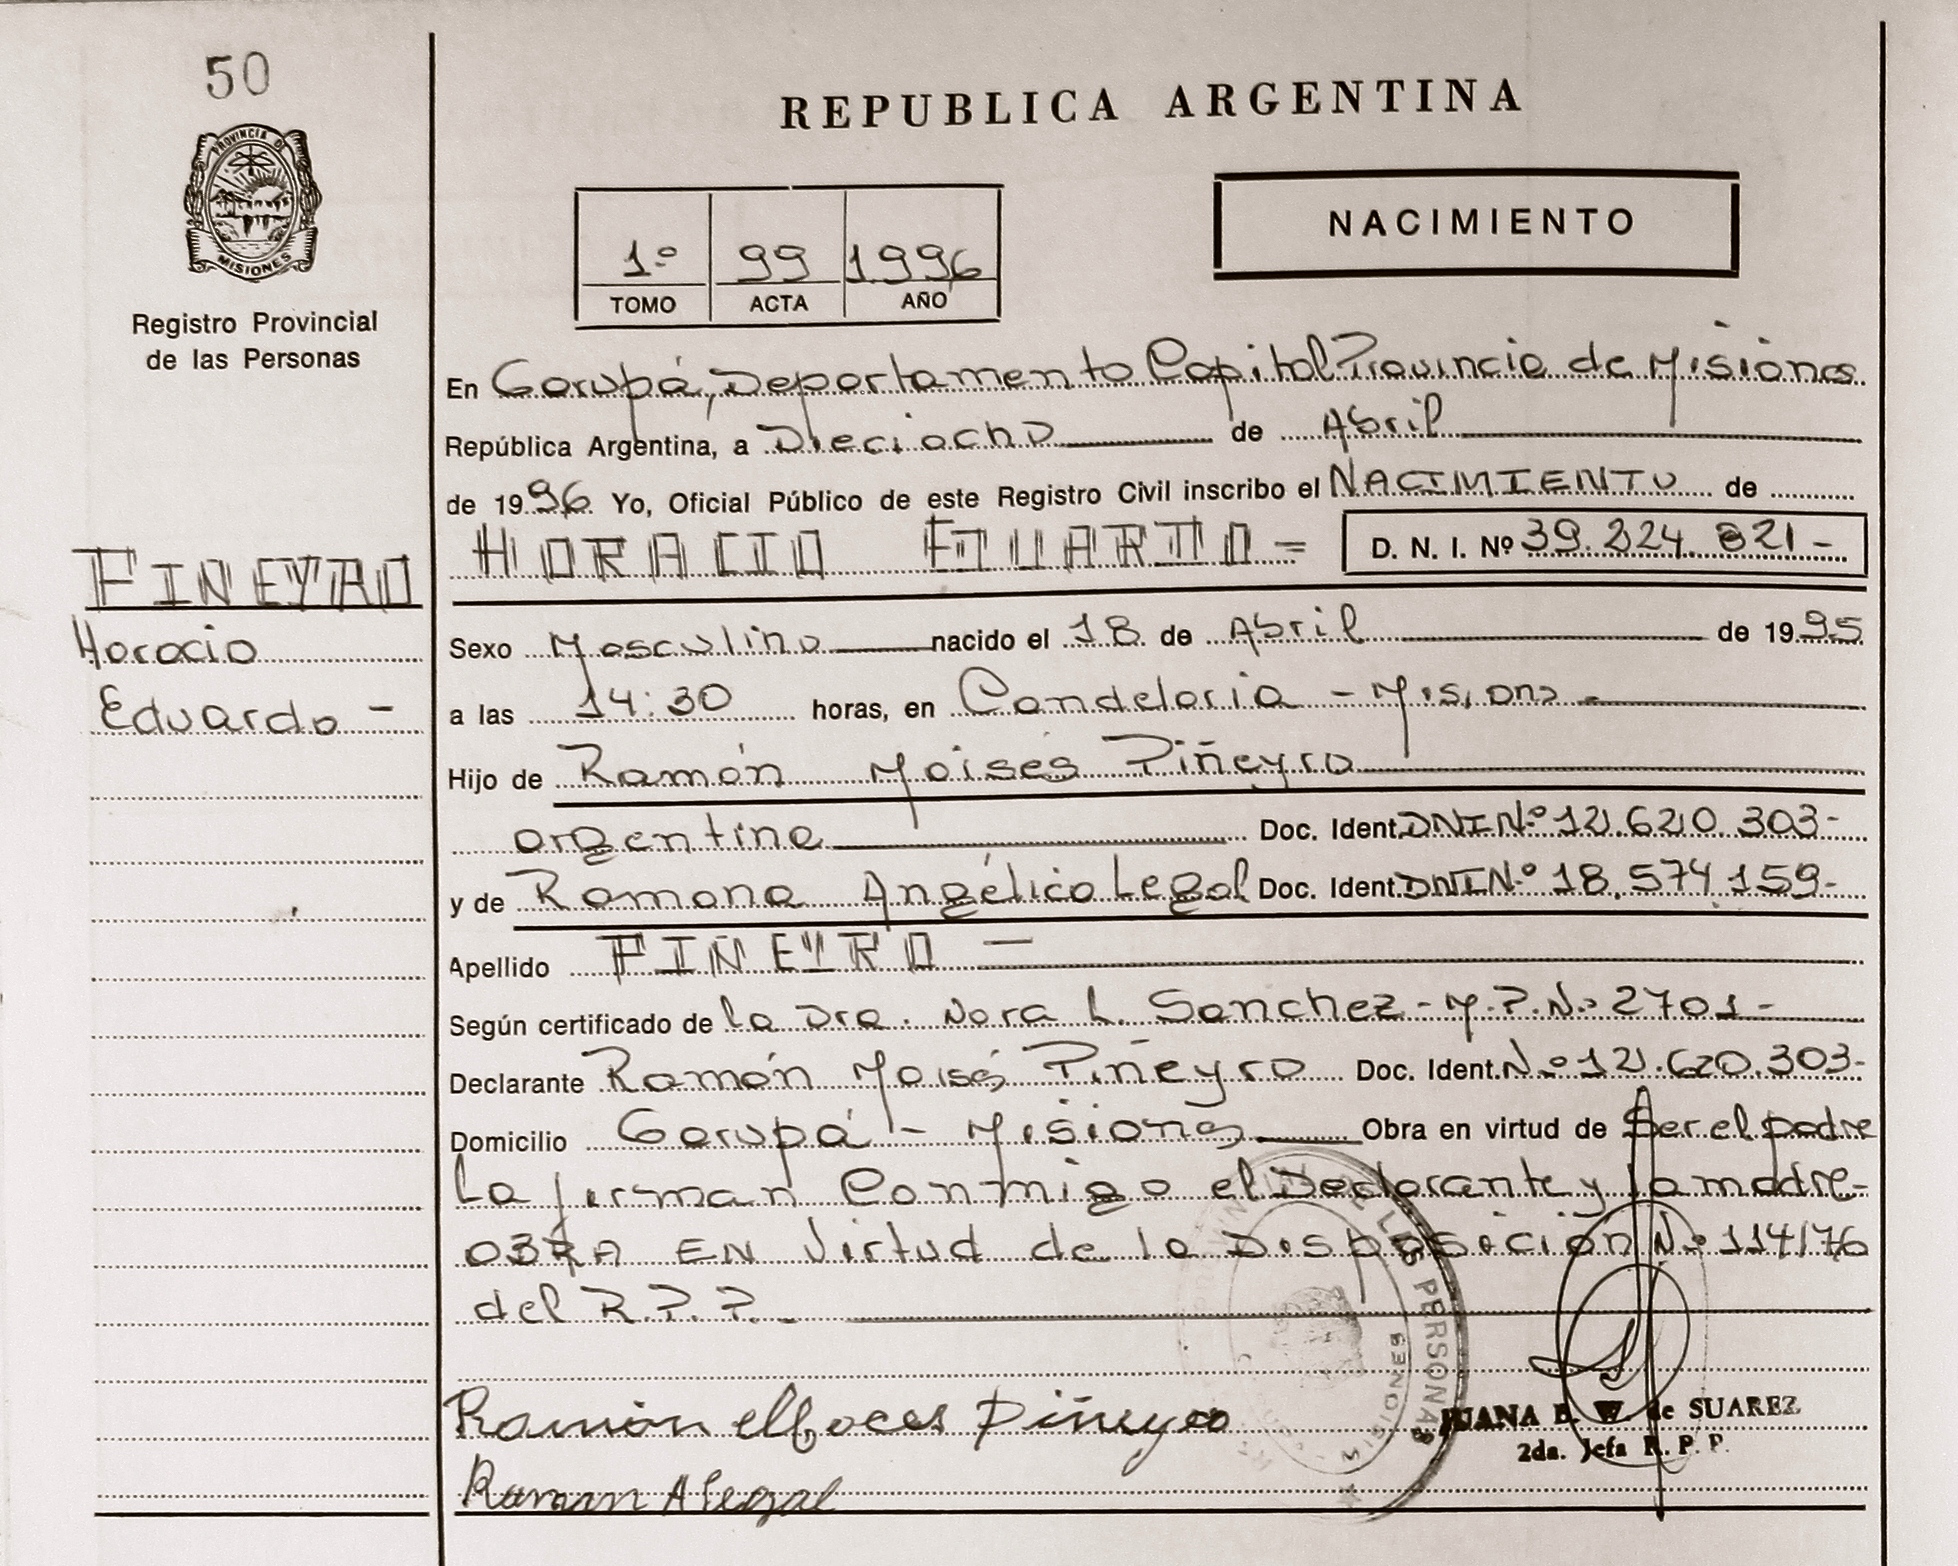 50
PROVINCIA DE
MISIONES
Registro Provincial
de las Personas
REPUBLICA ARGENTINA
NACIMIENTO
1º 99 1996
TOMO ACTA AÑO
En Garupá, Departamento Capital Provincia de Misiones
República Argentina, a Dieciocho de Abril
de 1996 Yo, Oficial Público de este Registro Civil inscribo el NACIMIENTO de
HORACIO EDUARDO = D. N. I. Nº 39.224.821-
PIÑEYRO
Horacio
Eduardo -
Sexo Masculino nacido el 18 de Abril de 1995
a las 14:30 horas, en Candelaria - Misiones -
Hijo de Ramón Moisés Piñeyro
argentina Doc. Ident. DNI Nº 12.620.303-
y de Ramona Angélica Legal Doc. Ident. DNI Nº 18.574.159-
Apellido PIÑEYRO -
Según certificado de la Dra. Nora L. Sanchez - M.P.Nº 2701-
Declarante Ramón Moisés Piñeyro Doc. Ident. Nº 12.620.303-
Domicilio Garupá - Misiones Obra en virtud de Ser el padre
La firman Conmigo el Declarante y la madre-
OBRA EN Virtud de la Disposición Nº 114/76
del R.P.P.
Ramón Piñeyro
JUANA E. W. de SUAREZ
2da. Jefa R. P. P.
Ramona A Legal
DE LAS PERSONAS
MISIONES